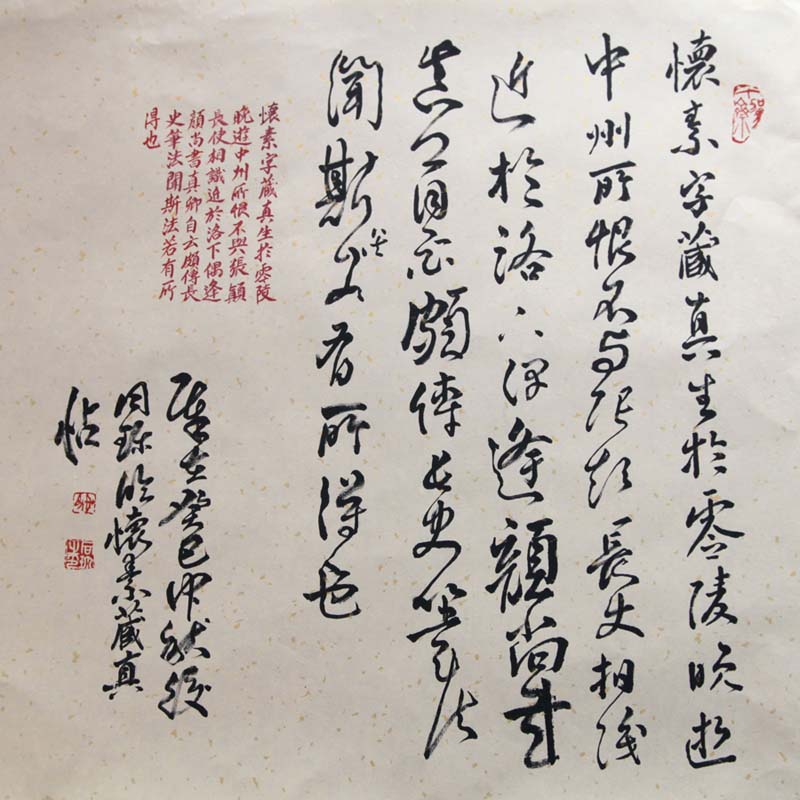 懷素字藏真生於零陵晚遊
中州所恨不與張顛長史相識
近於洛下偶逢顏尚書
真卿自云頗傳長史筆法
聞斯法若有所得也
懷素字藏真生於零陵
晚遊中州所恨不與張顛
長使相識近於洛下偶逢
顏尚書真卿自云頗傳長
史筆法聞斯法若有所
得也
歲在癸巳中秋後
臨懷素藏真
帖